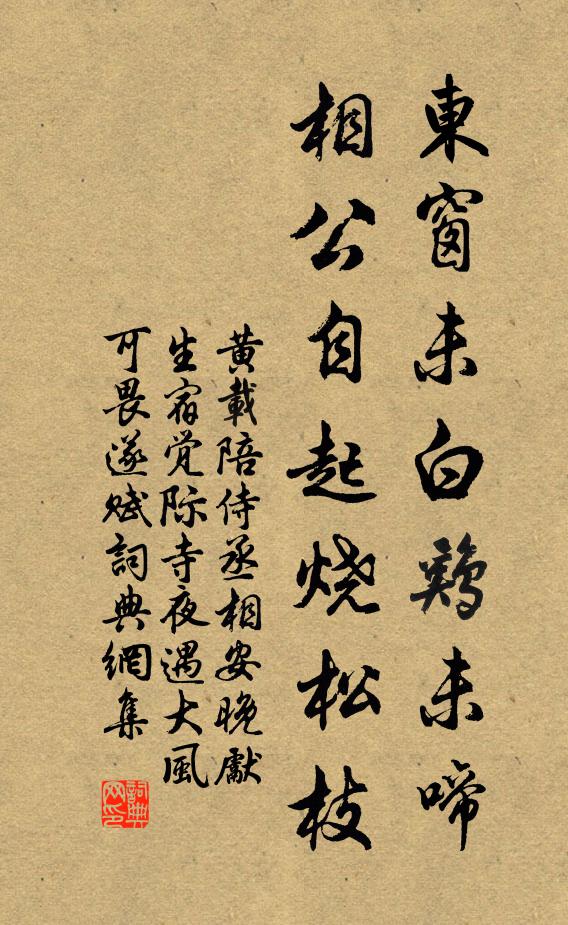 東窗未白鷄未啼
相公自起烧松枝
黄載陪侍丞相安晚獻
生宿觉际寺夜遇大風
可畏遂赋詞典網集
詞典网印